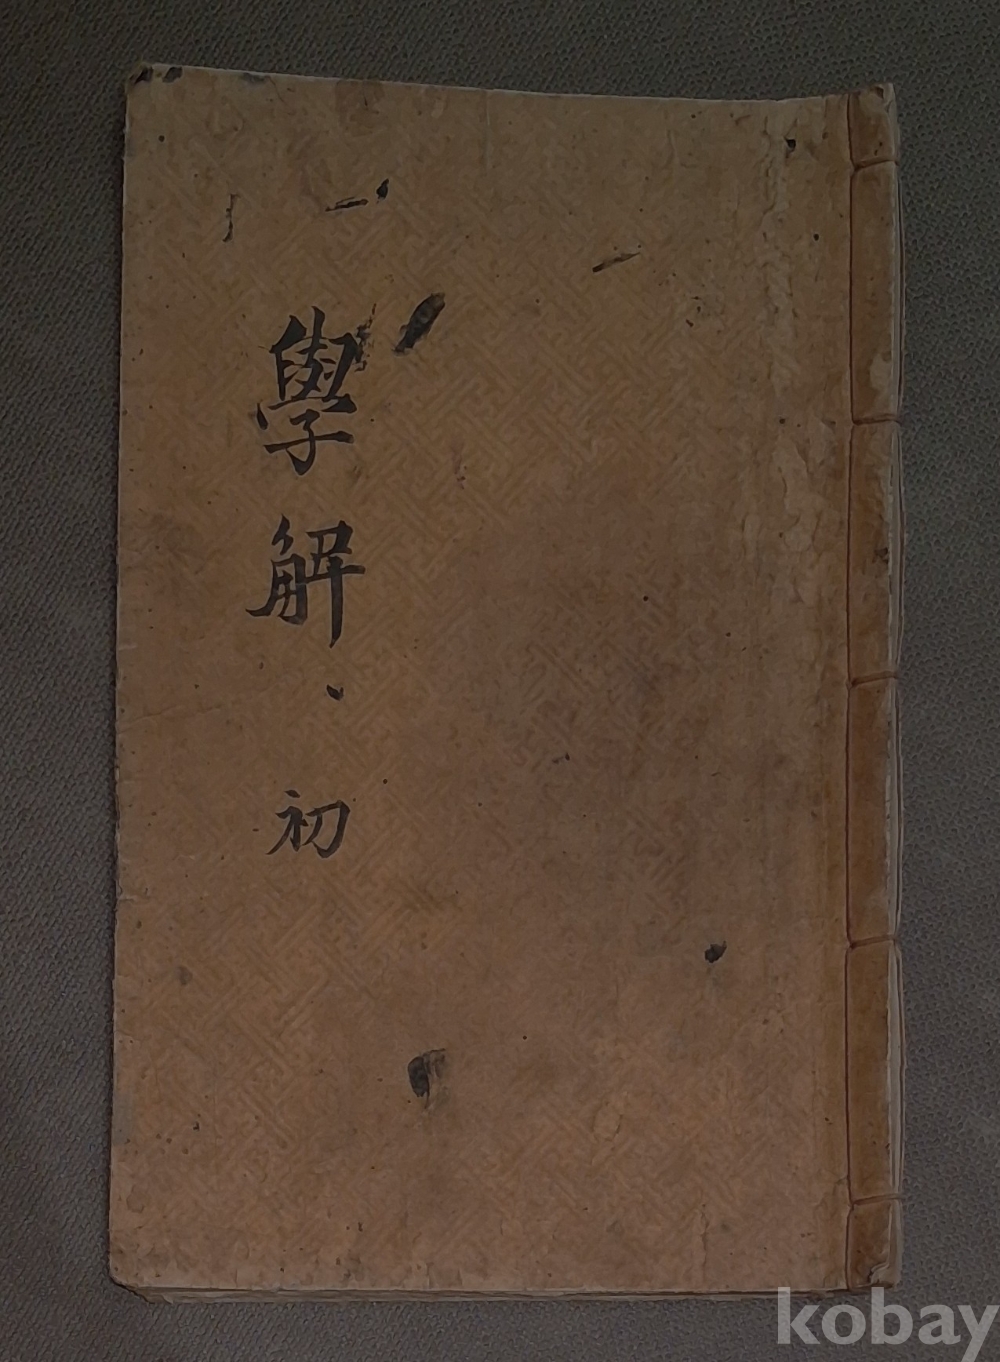 學解
初
kobay